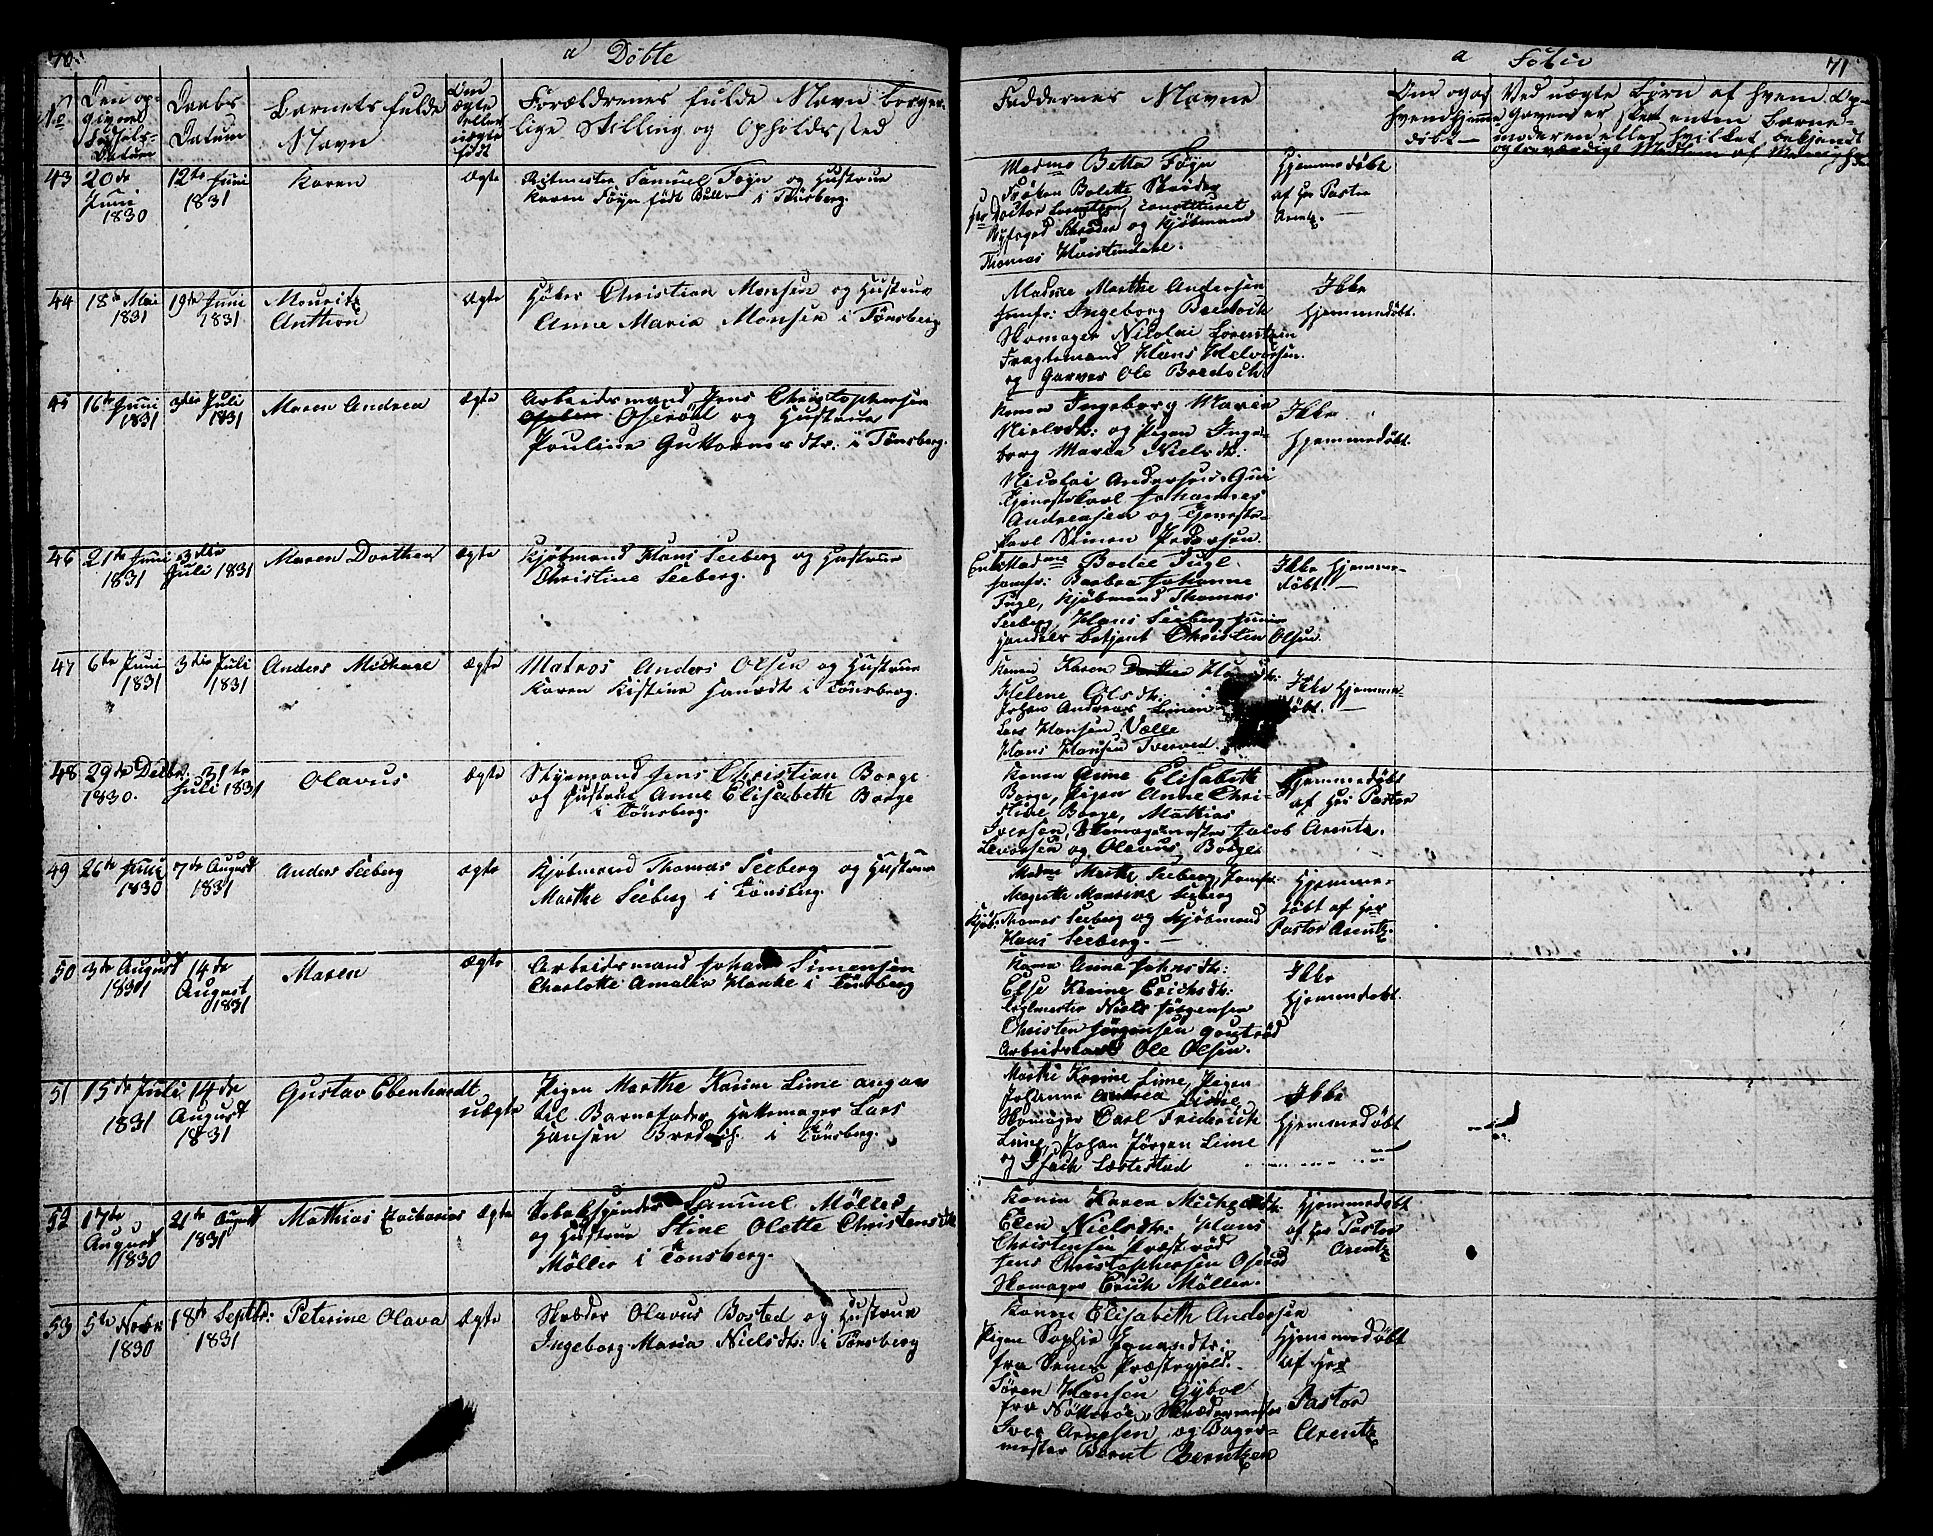 70.
a Döbte
No
Den op-
givne
Födsels-
Datum
Daabs
Datum
Barnets fulde
Navn
Om
ægte
eller
uægte
födt
Forældrenes fulde Navn borger-
lige Stilling og Opholdssted
43
20de
Juni
1830
12te Juni
1831
Karen
Ægte
Ritmester Samuel Foyn og Hustrue
Karen Föyn født Bull i Tönsberg.
44
18de Mai
1831
19te Juni
1831
Mouritz
Anthon
Ægte
Höker Christian Monsen og Hustrue
Anne Maria Monsen i Tönsberg
45
16te Juni
1831
3die Juli
1831
Maren Andrea
Ægte
Arbeidsmand Jens Christophersen
Oseröd og Hustrue
Pauline Guttormsdtr. i Tönsberg.
46
21te Juni
1831
3die
Juli 1831
Maren Dorthea
Ægte
Kjöbmand Hans Seeberg og Hustrue
Christine Seeberg.
47
6te Juni
1831
3die Juli
1831
Anders Michael
Ægte
Matros Anders Olsen og Hustrue
Karen Kistine Hansdtr i Tönsberg.
48
29de Decbr.
1830.
31te
Juli 1831
Olavus
Ægte
Styrmand Jens Christian Borge
og Hustrue Anne Elisabeth Borge
i Tönsberg.
49
26te Juni
1830
7de August
1831
Anders Seeberg
Ægte
Kjöbmand Thomas Seeberg og Hustrue
Marthe Seeberg i Tönsberg.
50
3de August
1831
14de
August
1831
Maren
Ægte
Arbeidsmand Johan Simensen
Charlotte Amalia Hanke i Tönsberg
51
15de Juli
1831
14de
August
1831
Gustav Ebenhardt
uægte
Pigen Marthe Karine Lime angav
til Barnefader Hattemager Lars
Hansen Bredoch i Tönsberg.
52
17te
August
1830
21te August
1831
Mathias Zacharias
Ægte
Tobaksspinder Samuel Möller
og Hustrue Stine Olette Christensdtr
Möller i Tönsberg.
53
5te Novbr
1830
18de Septbr:
1831
Peterine Olava
Ægte
Skræder Olavus Bosted og Hustrue
Ingeborg Maria Nielsdtr: i Tönsberg
a Folio
71
Faddernes Navne
Om og af
hvem hjemme
döbt
Ved uægte Börn af hvem Op-
gaven er skeet enten Barne-
moderen eller hvilket bekjendt
og troværdigt Medlem af Menighden
Madme Betta Foyn
Fröken Bolette Skröder
Hr Doctor Lorentzen, constitueret
Byfoged Schröder og Kjöbmand
Thomas Hvistendahl.
Hjemmedöbt
af Hr Pastor
Arentz.
Madme Marthe Andersen
Jomfr: Ingeborg Bredoch
Skomager Nicolai Lorentzen
Fragtemand Hans Halvorsen.
og Garver Ole Bredoch
Ikke
hjemmedöbt.
Konen Ingeborg Maria
Nielsdtr: og Pigen Inge-
borg Maria Nielsdtr.
Nicolai Andersen
Tjenestekarl Johannes
Andreasen og Tjeneste-
karl Simon Pedersen.
Ikke
hjemmedöbt.
Enke Madme Bodee Fugl
Jomfr: Barbra Johanne
Fugl, Kjöbmand Thomas
Seeberg, Hans Seeberg junior
Handels Betjent Christian Olsen.
Ikke hjemme-
döbt. —
Konen Karen
Helene Olsdtr:
Johan Andreas Simen
Lars Hansen Valle
Hans Hansen Tverved.
Ikke hjemme-
döbt. —
Konen Anne Elisabeth
Borge, Pigen Anne Chri-
stine Borge, Mathias
Iversen, Skomagermester Jacob
Levorsen og Olavus Borge.
Hjemmedöbt
af Hr Pastor
Arentz.
Madme Marthe Seeberg, Jomfr:
Magrethe Mandine Seeberg
Kjöb: Thomas Seeberg og Kjöbmand
Hans Seeberg. —
Hjemme-
döbt af Hr
Pastor Arentz.
Konen Anne Johnsdtr:
Else Karine Erichsdtr:
Teglmester Niels Jörgensen
Christen Jörgensen
Arbeidskarl Ole Olsen.
Ikke
hjemmedöbt.
Marthe Karine Lime, Pigen
Johanne Andrea Lime
Skomager Carl Friderich
Lime, Johan Jörgen Lime
og Isach Læstestad
Ikke
hjemmedöbt
Konen Karen Michelsdtr:
Elen Nielsdtr: Hans
Christensen Præsteröd
Jens Christophersen Oseröd
Skomager Erich Möller.
Hjemmedöbt
af Hr Pastor
Arentz
Konen Elisabeth Andersen
Pigen Sophie Jonasdtr:
fra Sems Præstegjeld.
Sören Hansen Gyboe
fra Nötteröe, Skrædermester
Iver Arnesen og Bager-
mester Bernt Berntzen
Hjemmedöbt
af Hr
Pastor
Arentz